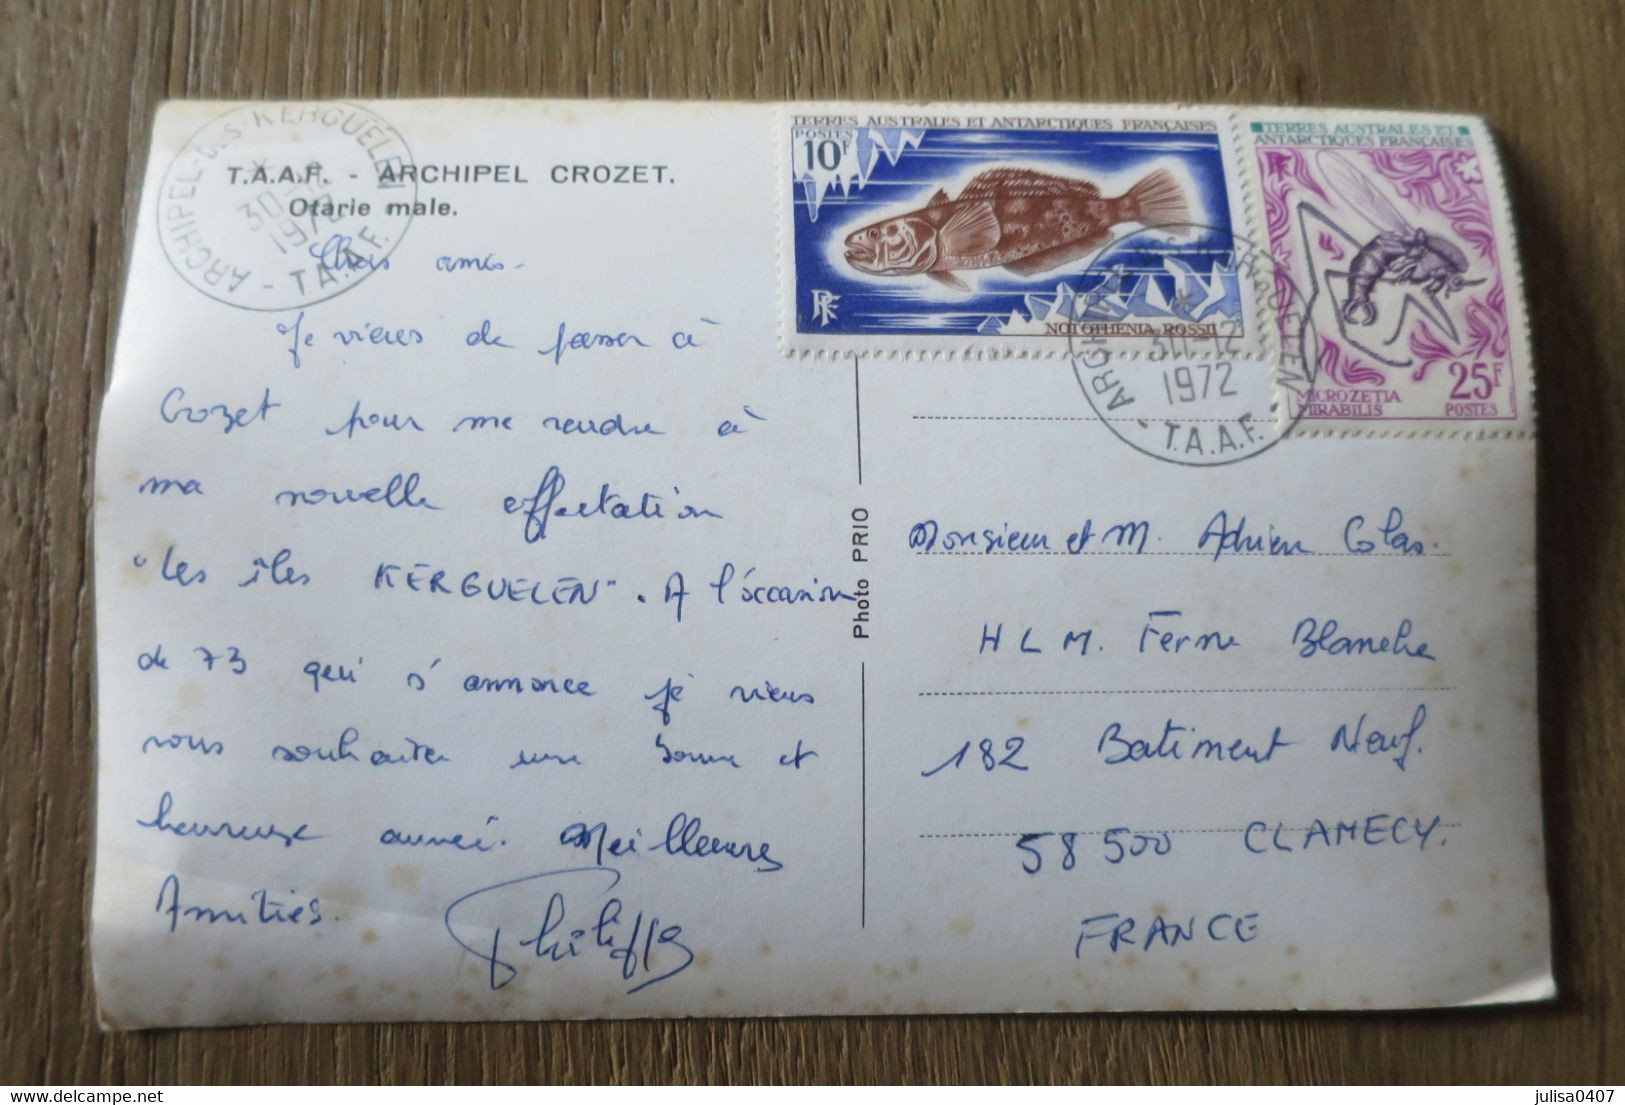 ARCHIPEL DES KERGUELEN
30-12
1972
T.A.A.F.
T.A.A.F. - ARCHIPEL CROZET.
Otarie male.
Chers amis-
Je viens de passer à
Crozet pour me rendre à
ma nouvelle affectation
"Les îles KERGUELEN". A l'occasion
de 73 qui s'annonce je viens
vous souhaiter une bonne et
heureuse année. Meilleures
Amitiés.
Philippe
Photo PRIO
TERRES AUSTRALES ET ANTARCTIQUES FRANÇAISES
POSTES
10F
RF
NOTOTHENIA ROSSII
TERRES AUSTRALES ET
ANTARCTIQUES FRANÇAISES
RF
25F
MICROZETIA
MIRABILIS
POSTES
ARCHIPEL DES KERGUELEN
30-12
1972
T.A.A.F.
Monsieur et M. Adrien Colas.
H L M. Ferme Blanche
182 Batiment Neuf.
58500 CLAMECY.
FRANCE
delcampe.net
julisa0407